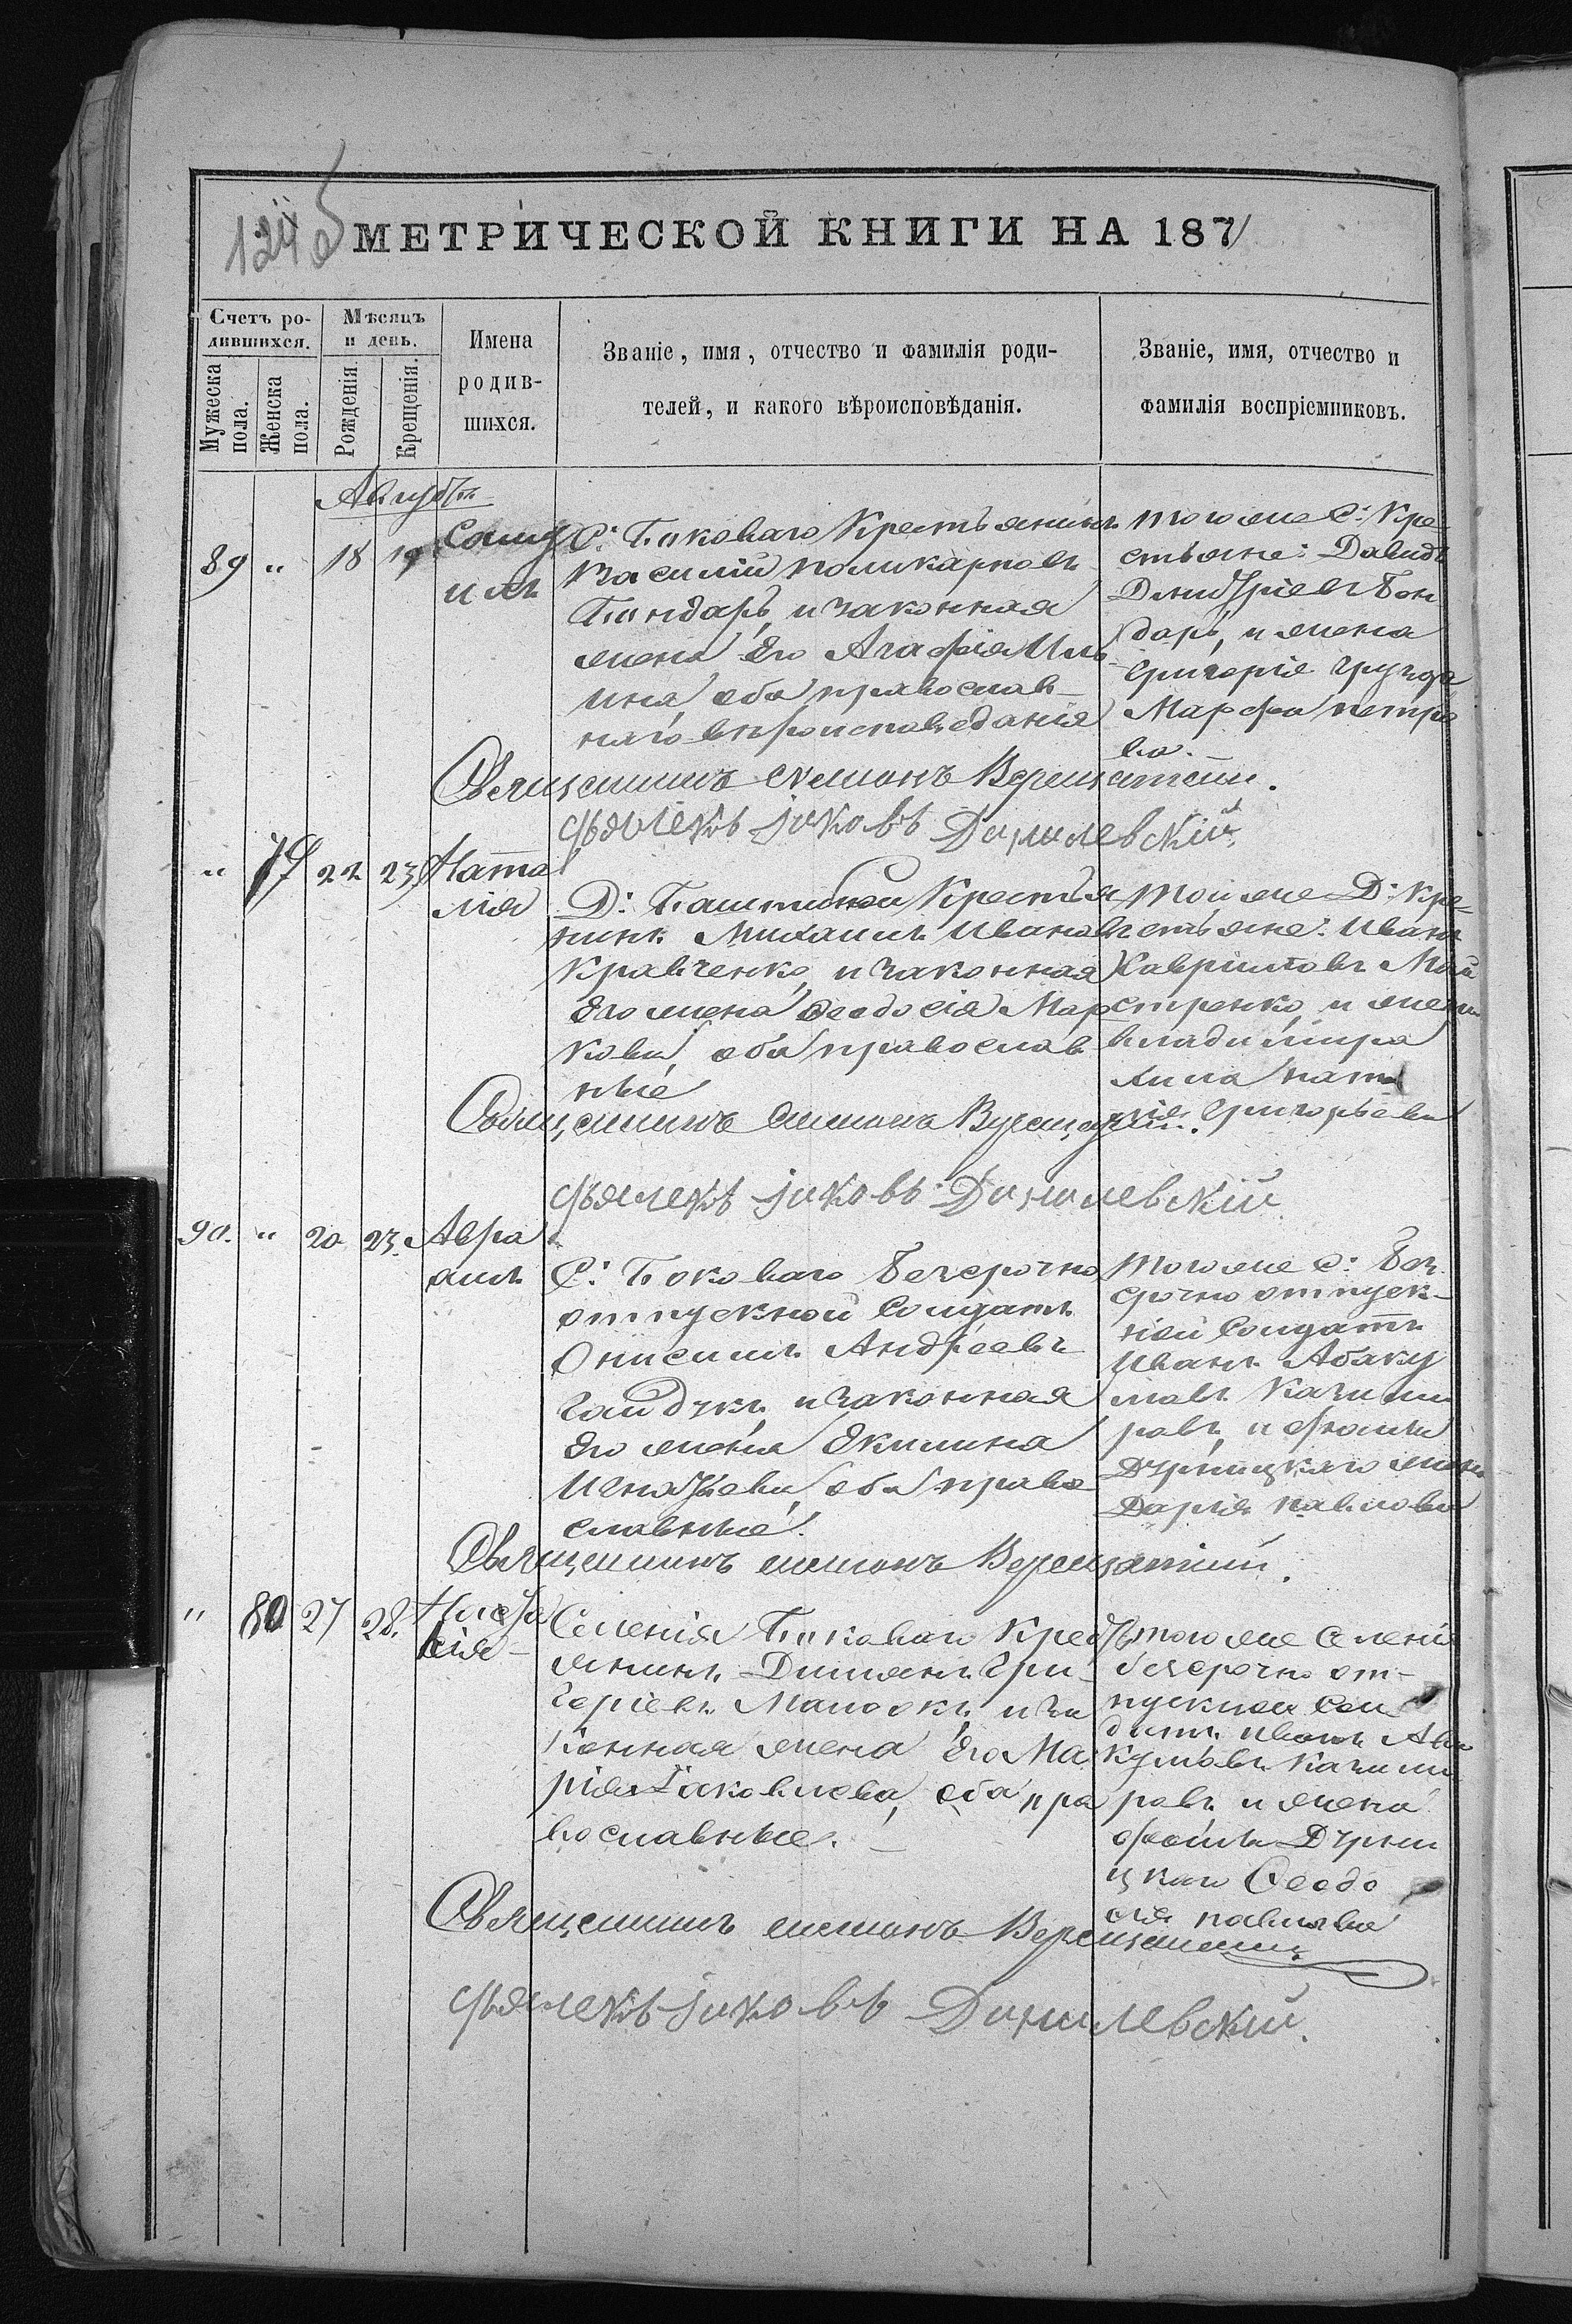 124 об
МЕТРИЧЕСКОЙ КНИГИ НА 1871
Счетъ ро-
дившихся.
Мужеска
пола.
Женска
пола.
Мѣсяцъ
и день.
Рожденія.
Крещенія.
Имена
родив-
шихся.
Званіе, имя, отчество и фамилія роди-
телей, и какого вѣроисповѣданія.
Званіе, имя, отчество и
фамилія воспріемниковъ.
Августъ
89 " 18 19 Саму
илъ
С: Боковаго Крестьянинъ
Василій поликарповъ
Бондарь, и законная
жена Его Агафія Иль
ина, оба православ-
наго вѣроисповѣданія
того же С: Кре-
стьяне: Давидъ
Димитріевъ Бон
дарь, и жена
Григорія
Марфа петро
ва.
Священникъ Симонъ
дьячекъ Іаковъ Данилевскій
" 79 22 23 Ната
лія
Д: Крестья
нинъ Михаилъ Ивановъ
Кравченко, и законная
Его жена Феодосія Мар
кова, оба православ
ные
Той же Д: Кре-
стьяне: Иванъ
Гавріиловъ Май
стренко, и жена
владиміра
Григорьева
Священникъ Симонъ
дьячекъ Іаковъ Данилевскій
90. " 20 23. Авра
амъ
С: Боковаго Безсрочно
отпускной Солдатъ
Онисимъ Андреевъ
Гайдукъ, и законная
Его жена Екилина
Игнатьева, оба право
славные.
Того же С: Без
срочно отпуск-
ной Солдатъ
Иванъ Абаку
мовъ Казими
ровъ, и Фомы
жена
Дарія павлова
Священникъ Симонъ
" 80 27 28. Наста
сія
Селенія Боковаго Крест
янинъ Диміянъ Гри
горіевъ и за
конная жена Его Ма
рія Іаковлева, оба пра
вославные.
Ть того же Селенія
безсрочно от-
пускной Сол
датъ Иванъ Аба
кумовъ Казими
ровъ и жена
Фомы
цкаго Феодо
сія павлова
Священникъ Симонъ
дьячекъ Іаковъ Данилевскій.